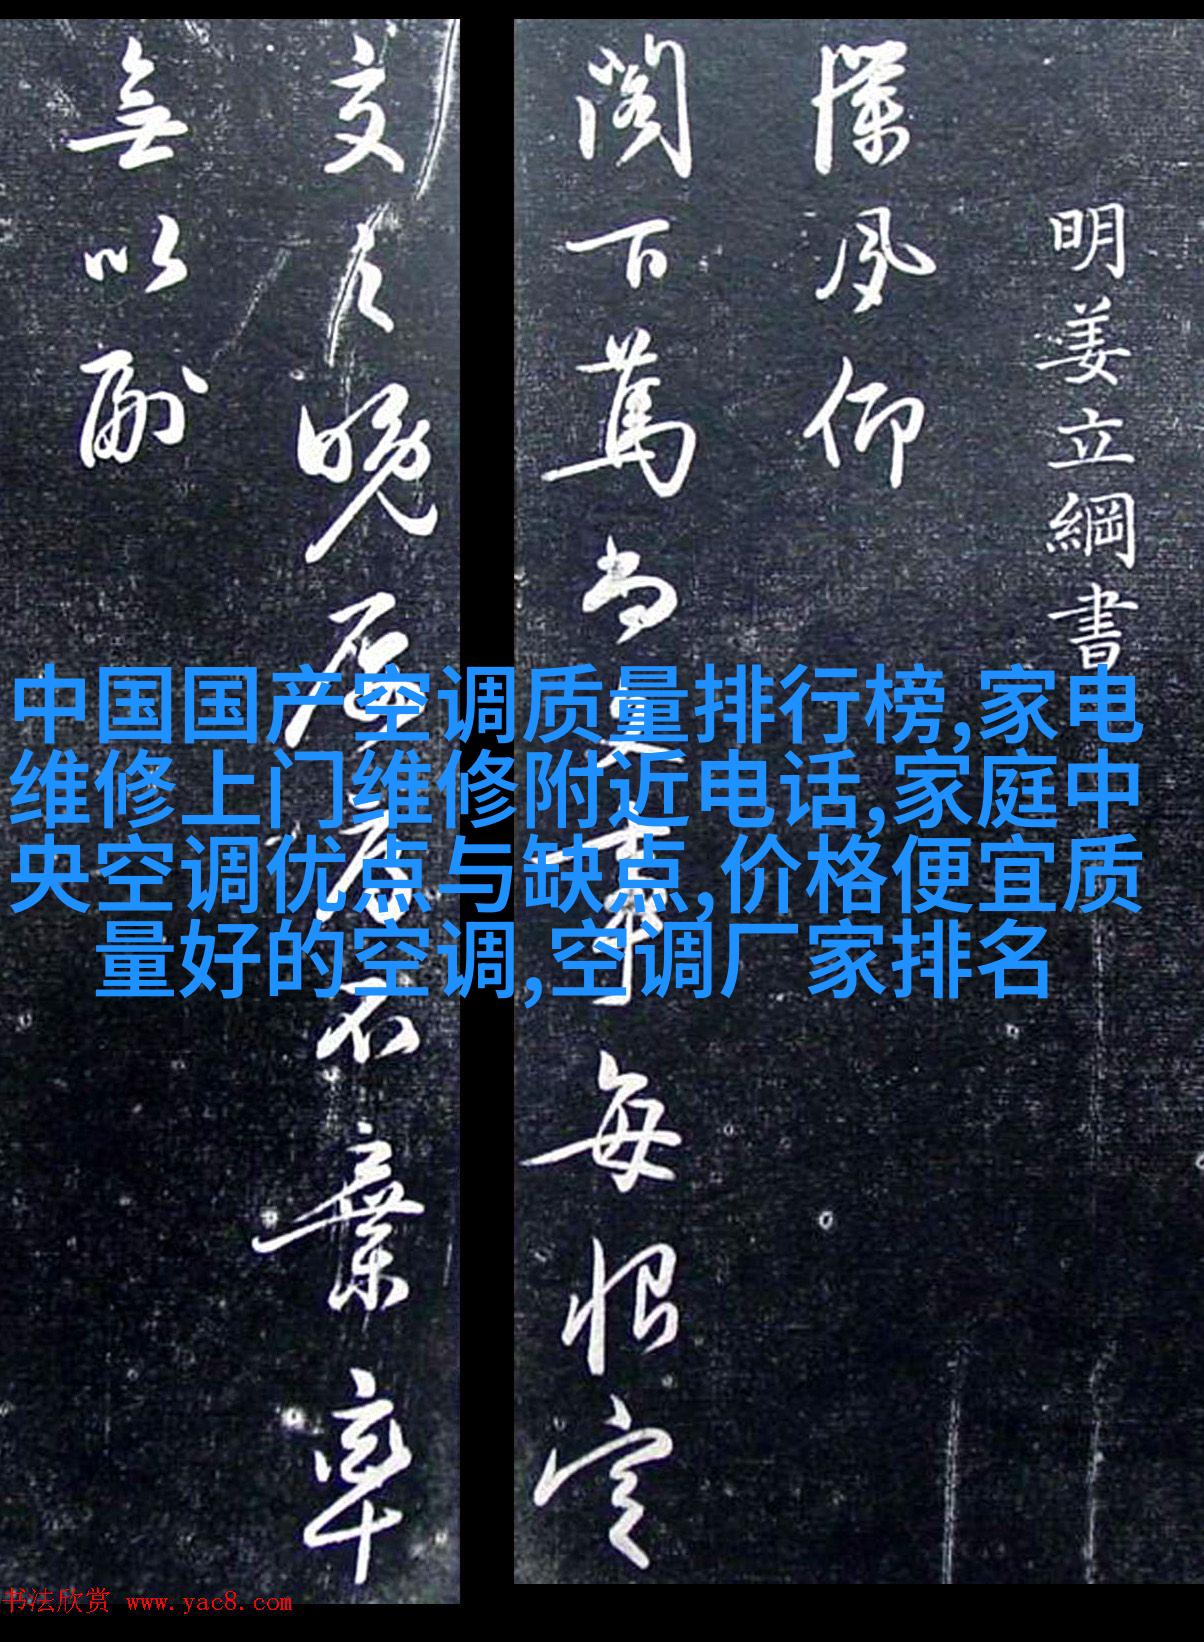 明姜立綱書
仰
閣百萬尚
每恨定
交
晚
棄率
無以副
中国国产空调质量排行榜,家电
维修上门维修附近电话,家庭中
央空调优点与缺点,价格便宜质
量好的空调,空调厂家排名
书法欣赏 www.yac8.com